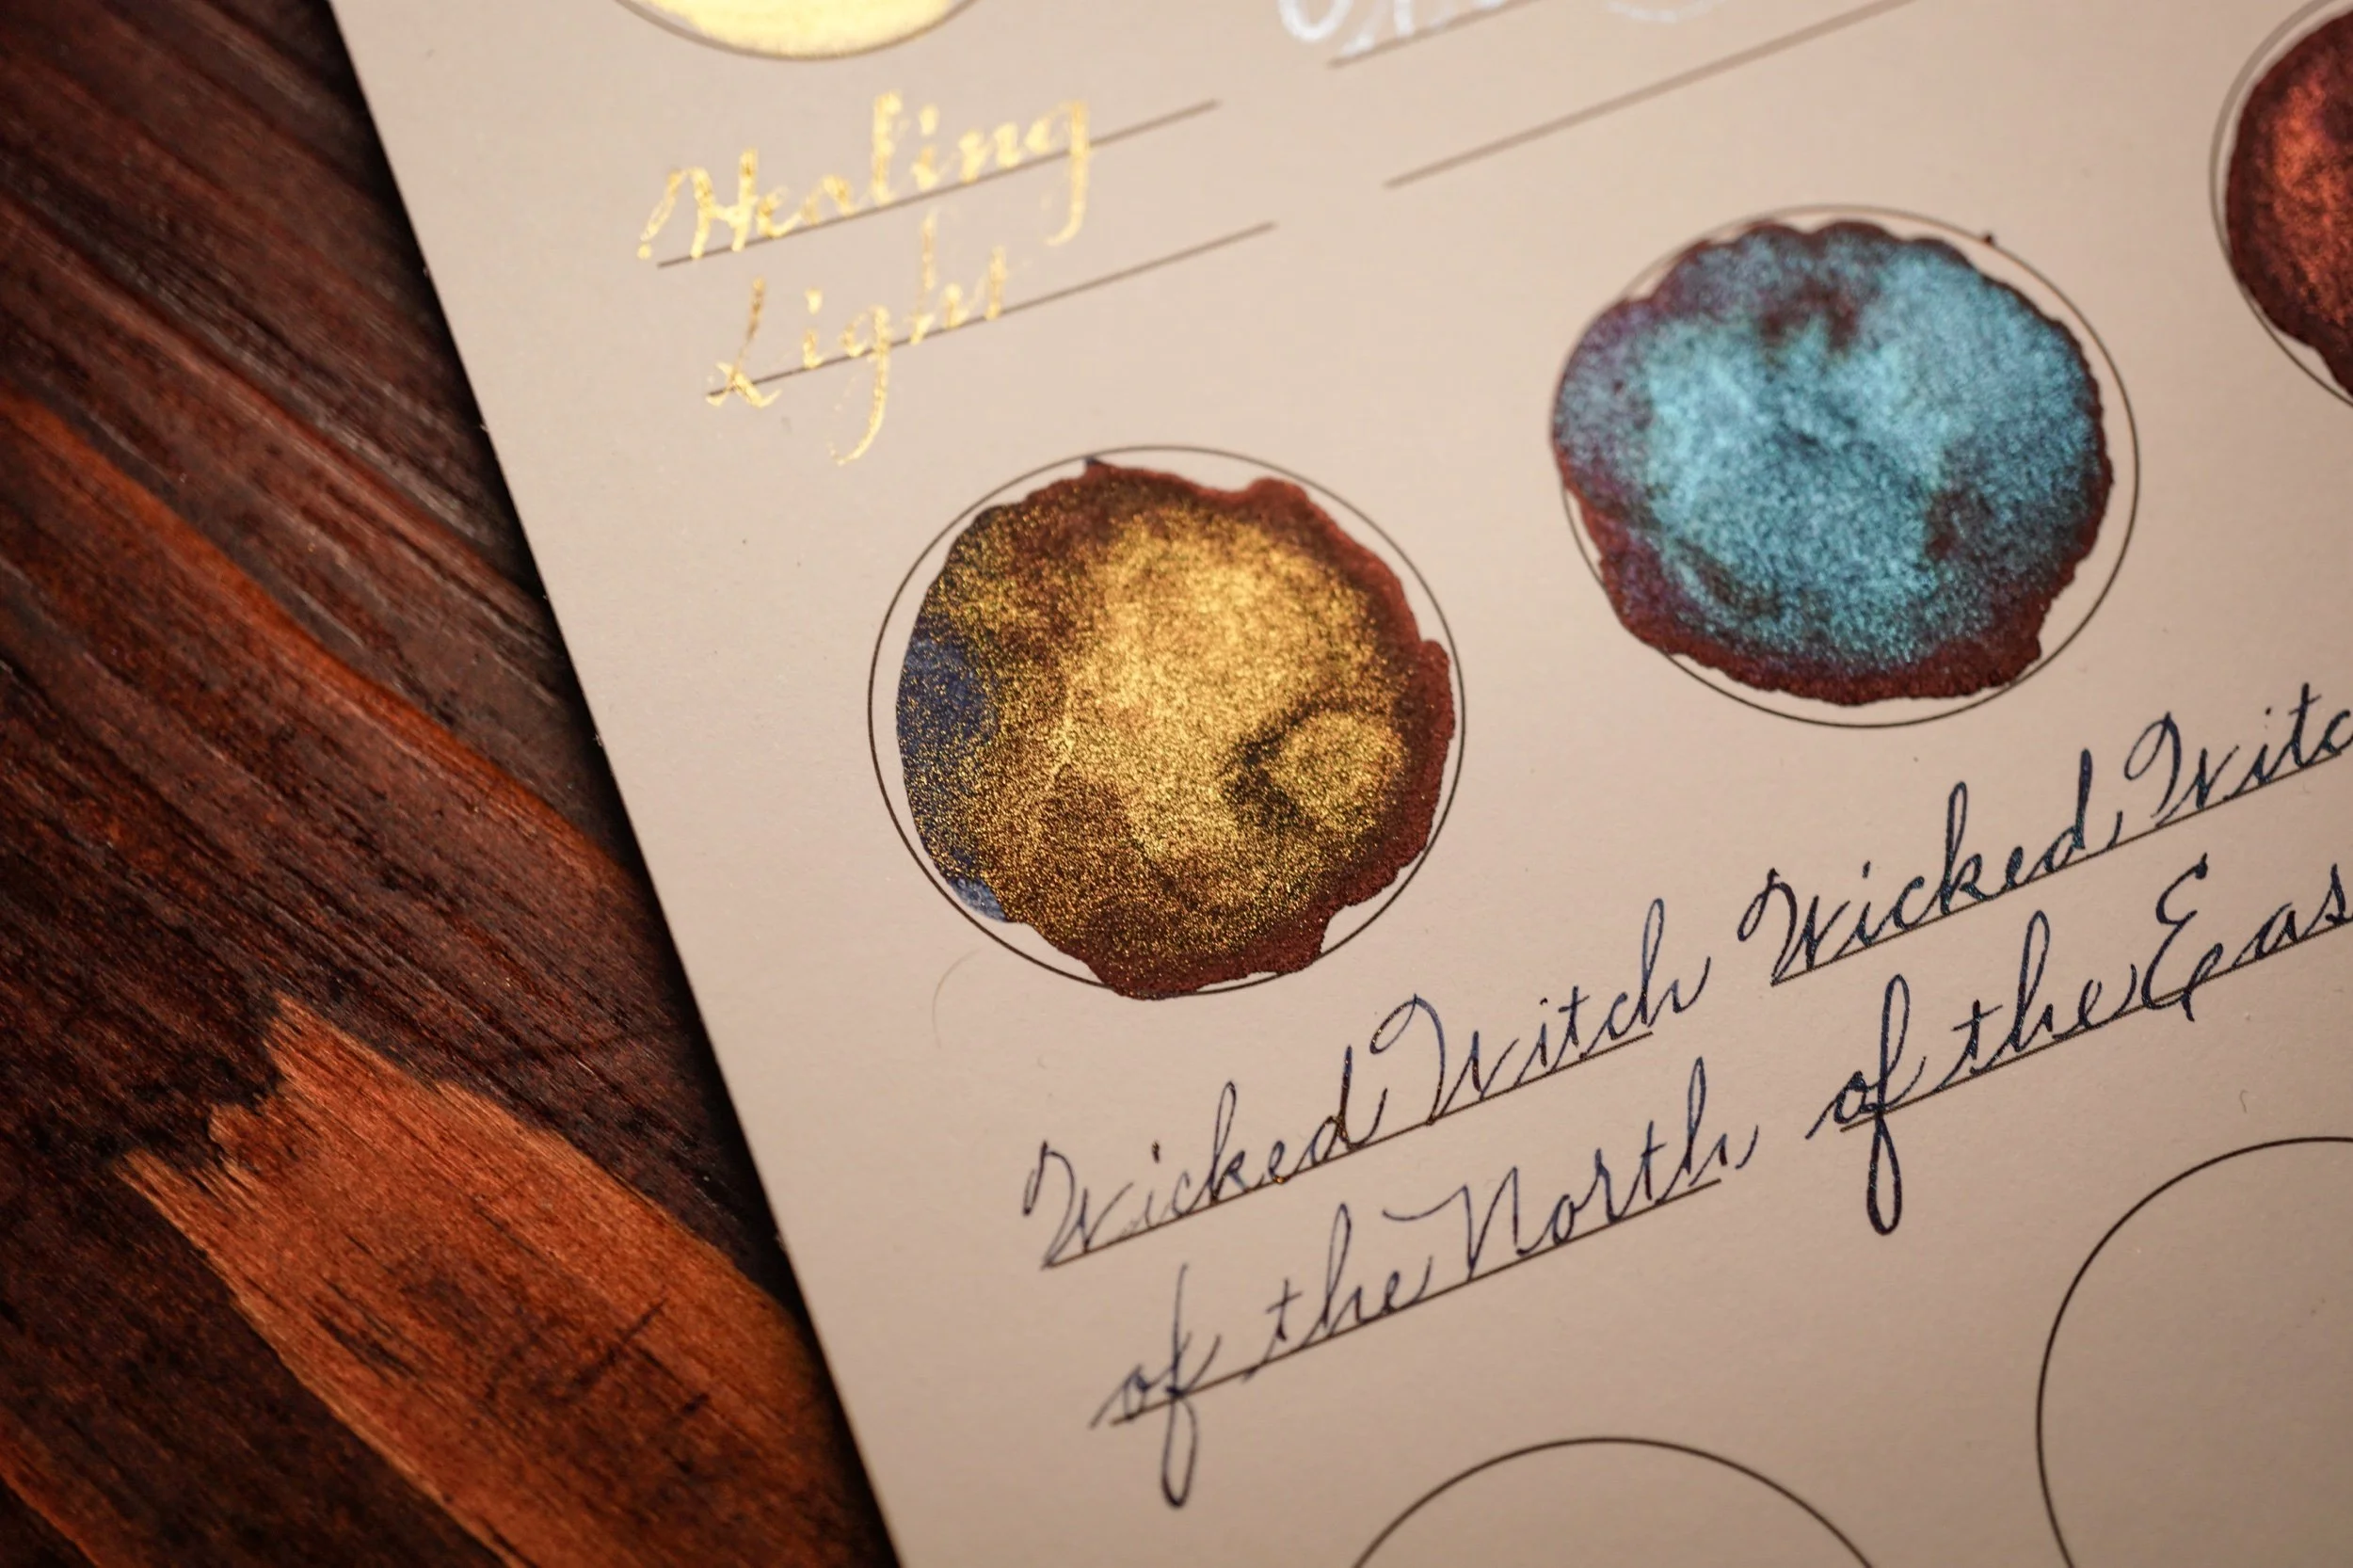 Healing
Light
Wicked Witch
of the North
Wicked
of the